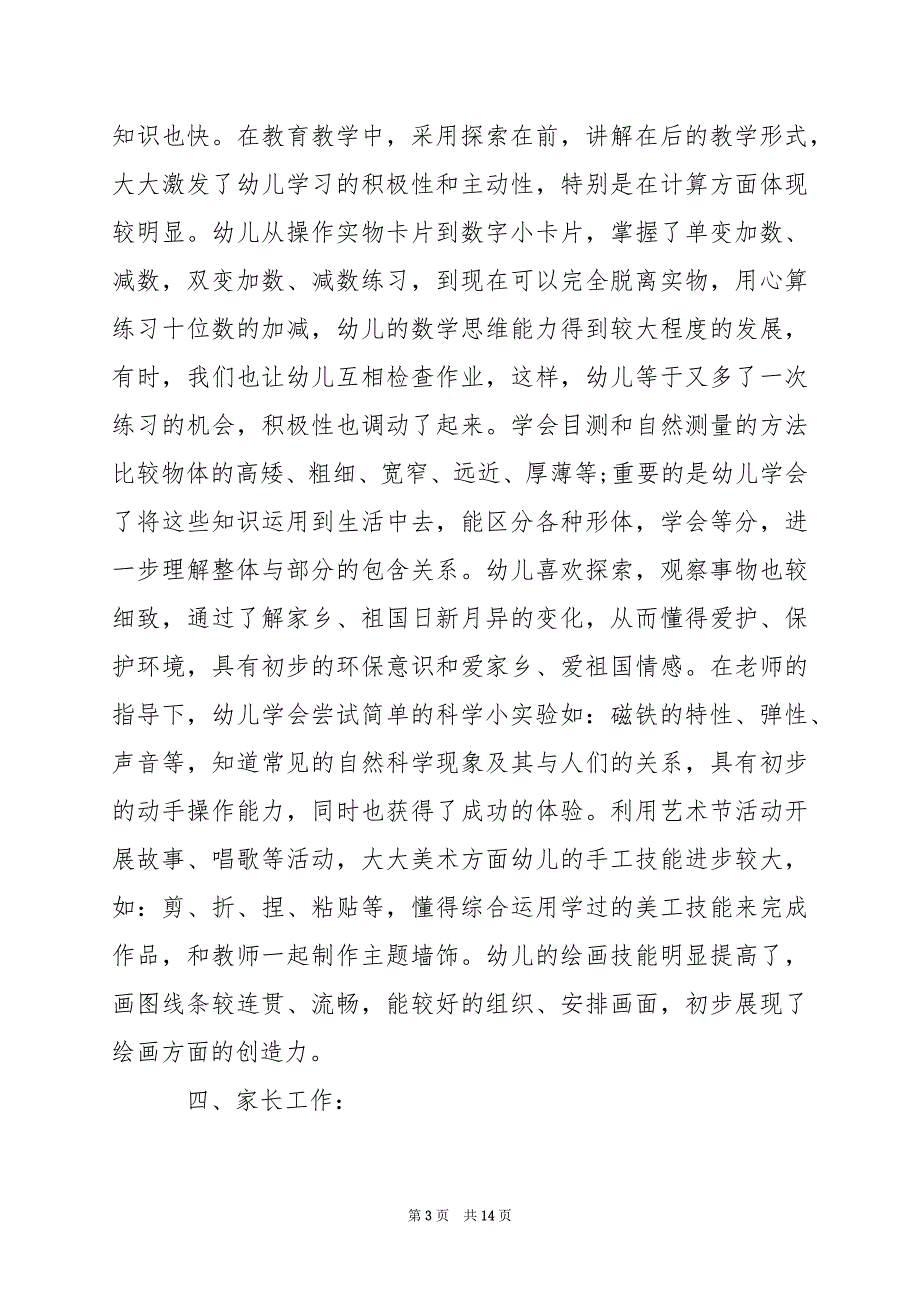 知识也快。在教育教学中，采用探索在前，讲解在后的教学形式，
大大激发了幼儿学习的积极性和主动性，特别是在计算方面体现
较明显。幼儿从操作实物卡片到数字小卡片，掌握了单变加数、
减数，双变加数、减数练习，到现在可以完全脱离实物，用心算
练习十位数的加减，幼儿的数学思维能力得到较大程度的发展，
有时，我们也让幼儿互相检查作业，这样，幼儿等于又多了一次
练习的机会，积极性也调动了起来。学会目测和自然测量的方法
比较物体的高矮、粗细、宽窄、远近、厚薄等;重要的是幼儿学会
了将这些知识运用到生活中去，能区分各种形体，学会等分，进
一步理解整体与部分的包含关系。幼儿喜欢探索，观察事物也较
细致，通过了解家乡、祖国日新月异的变化，从而懂得爱护、保
护环境，具有初步的环保意识和爱家乡、爱祖国情感。在老师的
指导下，幼儿学会尝试简单的科学小实验如：磁铁的特性、弹性、
声音等，知道常见的自然科学现象及其与人们的关系，具有初步
的动手操作能力，同时也获得了成功的体验。利用艺术节活动开
展故事、唱歌等活动，大大美术方面幼儿的手工技能进步较大，
如：剪、折、捏、粘贴等，懂得综合运用学过的美工技能来完成
作品，和教师一起制作主题墙饰。幼儿的绘画技能明显提高了，
画图线条较连贯、流畅，能较好的组织、安排画面，初步展现了
绘画方面的创造力。
四、家长工作：
第 3 页 共 14 页